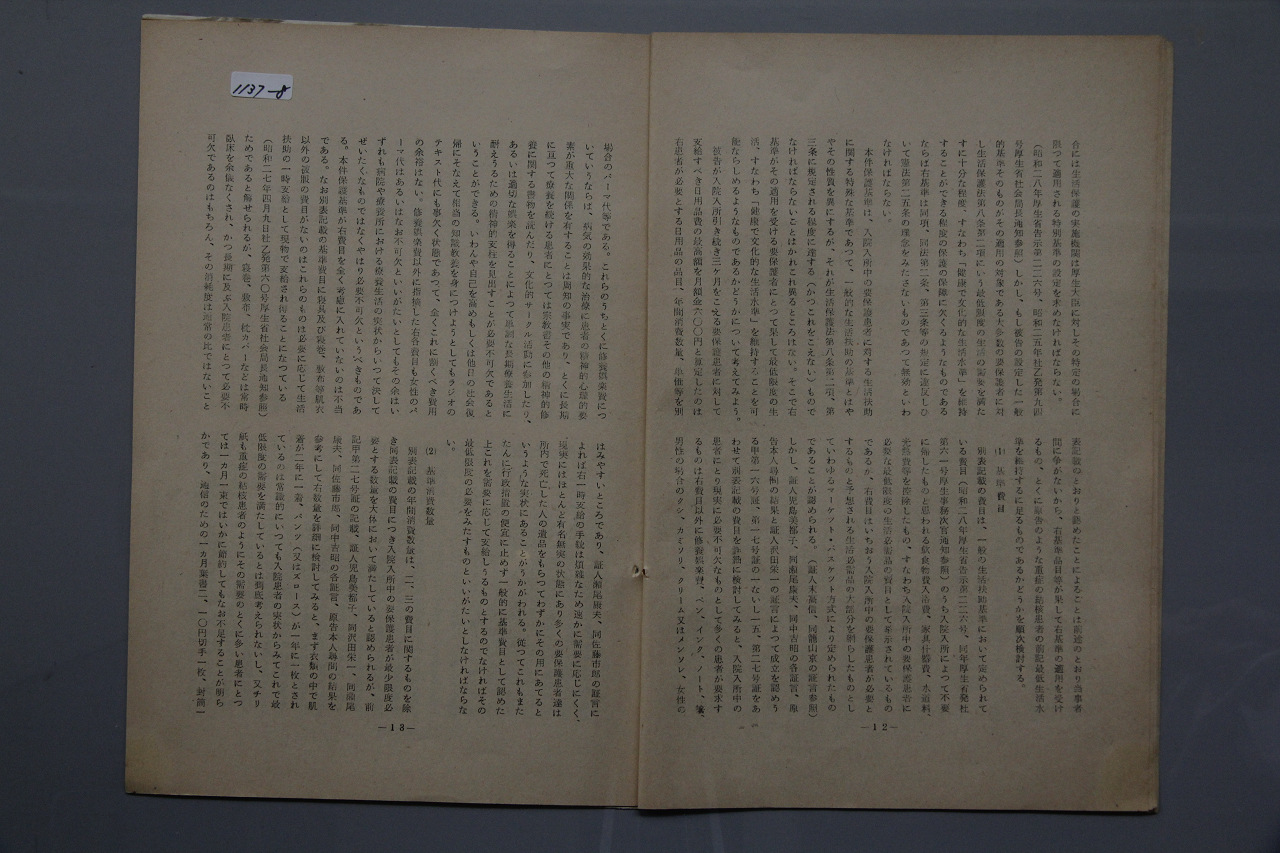 1137-8
合には生活保護の実施機関は厚生大臣に対しその特定の場合に
限つて適用される特別基準の設定を求めなければならない。
(昭和二八年厚生省告示第二二六号、昭和二五年社乙発第九四
号厚生省社会局長通知参照)しかし、もし被告の設定した一般
的基準そのものがその適用の対象である大多数の要保護者に対
し生活保護法第八条第二項にいう最低限度の生活の需要を満た
すに十分な程度、すなわち「健康で文化的な生活水準」を維持
することができる程度の保護の保障に欠くるようなものである
ならば右基準は同項、同法第二条、第三条等の規定に違反しひ
いて憲法第二五条の理念をみたさないものであつて無効といわ
なければならない。
本件保護基準は、入院入所中の要保護患者に対する生活扶助
に関する特殊な基準であつて、一般的な生活扶助の基準とはや
やその性質を異にするが、それが生活保護法第八条第二項、第
三条に規定される程度に達する(かつこれをこえない)もので
なければならないことはかれこれ異るところはない。そこで右
基準がその適用を受ける要保護者にとつて果して最低限度の生
活、すなわち「健康で文化的な生活水準」を維持することを可
能ならしめるようなものであるかどうかについて考えてみよう。
被告が入院入所引き続き三ヶ月をこえる要保護患者に対して
支給すべき日用品費の最高額を月額金六〇〇円と算定したのは
右患者が必要とする日用品の品目、年間消費数量、単価等を別
表記載のとおりと認めたことによることは前述のとおり当事者
間に争がないから、右基準品目等が果して右基準の適用を受け
るもの、とくに原告のような重症の結核患者の前記最低生活水
準を維持するに足るものであるかどうかを順次検討する。
(1) 基準費目
別表記載の費目は、一般の生活扶助基準において定められて
いる費目(昭和二八年厚生省告示第二二六号、同年厚生省発社
第六一号厚生事務次官通知参照)のうち入院入所によつて不要
に帰したものと思われる飲食物費入浴費、家具什器費、水道料、
光熱費等を控除したもの、すなわち入院入所中の要保護患者に
必要な最低限度の生活必需品の費目として掲示されているもの
であるが、右費目はいちおう入院入所中の要保護患者が必要と
するものと予想される生活必需品の大部分を網らしたものとし
ていわゆるマーケツト・バスケツト方式により定められたもの
であることが認められる。(証人末高信、同籠山京の証言参照)
しかし、証人児島美都子、同瀬尾康夫、同中吉昭の各証言、原
告本人尋問の結果と証人沢田栄一の証言によつて成立を認めう
る甲第一六号証、第一七号証の一ないし一五、第二七号証をあ
わせて別表記載の費目を詳細に検討してみると、入院入所中の
患者にとり現実に必要不可欠なものとして多くの患者が要求す
るものは右費目以外に修養娯楽費、ペン、インク、ノート、箸、
男性の場合のクシ、カミソリ、クリーム又はメンソレ、女性の
—12—
場合のパーマ代等である。これらのうちとくに修養娯楽費につ
いていうならば、病気の効果的な治療に患者の精神的心理的要
素が重大な関係を有することは周知の事実であり、とくに長期
に亘つて療養を続ける患者にとつては宗教書その他の精神的修
養に関する書物を読んだり、文化的サークル活動に参加したり、
あるいは適切な娯楽を得ることによつて単調な長期療養生活に
耐えうるための精神的支柱を見出すことが必要不可欠であると
いうことができる。いわんや自己を高めもしくは他日の社会復
帰にそなえて相当の知識教養を身につけようとしてもラジオの
テキスト代にも事欠く状態であつて、全くこれに割くべき費用
の余裕はない。修養娯楽費以外に指摘した各費目も女性のパ
ーマ代はあるいはなお不可欠といいがたいとしてもその余はい
ずれも病院や療養所における療養生活の実状からいつて決して
ぜいたくなものではなくやはり必要不可欠というべきものであ
る。本件保護基準が右費目を全く考慮に入れていないのは不当
である。なお別表記載の基準費目に寝具及び寝巻、敷布等肌衣
以外の被服の費目がないのはこれらのものは必要に応じて生活
扶助の一時支給として現物で支給され得ることになつている
(昭和二七年四月九日社乙発第六〇号厚生省社会局長通知参照)
ためであると解せられるが、寝巻、敷布、枕カバーなどは常時
臥床を余儀なくされ、かつ長期に及ぶ入院患者にとつて必要不
可欠であるのはもちろん、その消耗度は通常の比ではないこと
はみやすいところであり、証人瀬尾康夫、同佐藤市郎の証言に
よれば右一時支給の手続は煩雑なため速かに需要に応じにくく、
現実にはほとんど有名無実の状態にあり多くの要保護患者達は
所内で死亡した人の遺品をもらつてわずかにその用にあてると
いうような実状にあることがうかがわれる。従つてこれもまた
たんに行政措置の便宜に止めず一般的に基準費目として認めた
上これを需要に応じて支給しうるものとするのでなければその
最低限度の必要をみたすものといいがたいとしなければならな
い。
(2) 基準消費数量
別表記載の年間消費数量は、二、三の費目に関するものを除
き同表記載の費目につき入院入所中の要保護患者が最少限度必
要とする数量を大体において満たしていると認められるが、前
記甲第二七号証の記載、証人児島美都子、同沢田栄一、同瀬尾
康夫、同佐藤市郎、同中吉昭の各証言、原告本人尋問の結果を
参考にして右数量を詳細に検討してみると、まず衣類の中で肌
着が二年に一着、パンツ(又はズロース)が一年に一枚とされ
ているのは常識的にいつても入院患者の実状からみてこれで最
低限度の需要を満たしているとは到底考えられないし、又チリ
紙も重症の結核患者のようにその需要のとくに多い患者にとつ
ては一カ月一束ではいかに節約してもなお不足することが明ら
かであり、通信のための一カ月葉書二、一〇円切手一枚、封筒一
—13—